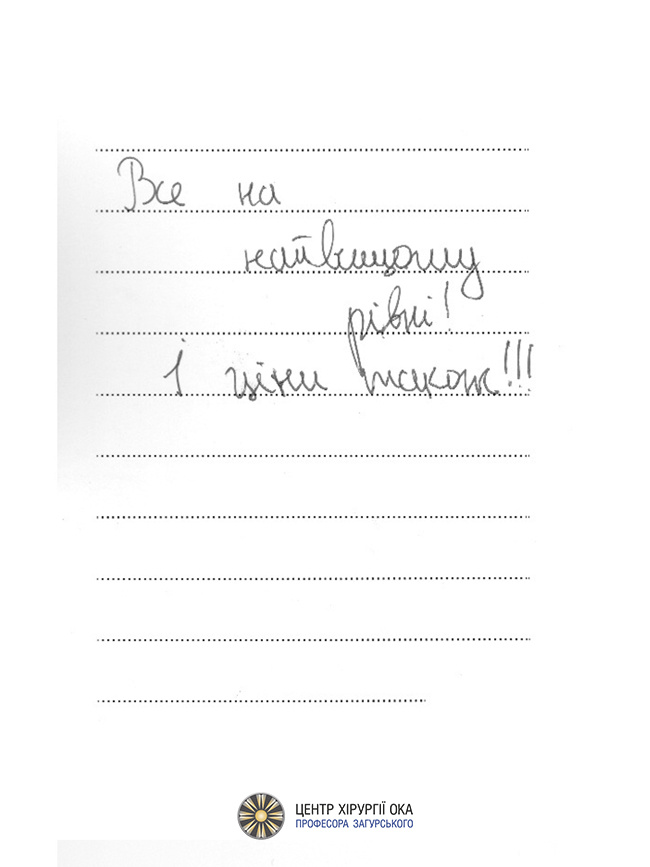 Все на
найвищому
рівні!
І ціни також!!!
ЦЕНТР ХІРУРГІЇ ОКА
ПРОФЕСОРА ЗАГУРСЬКОГО